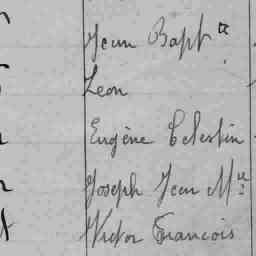 Jean Bapt te
Léon
Eugène Celestin
Joseph Jean M ie
Victor Francois